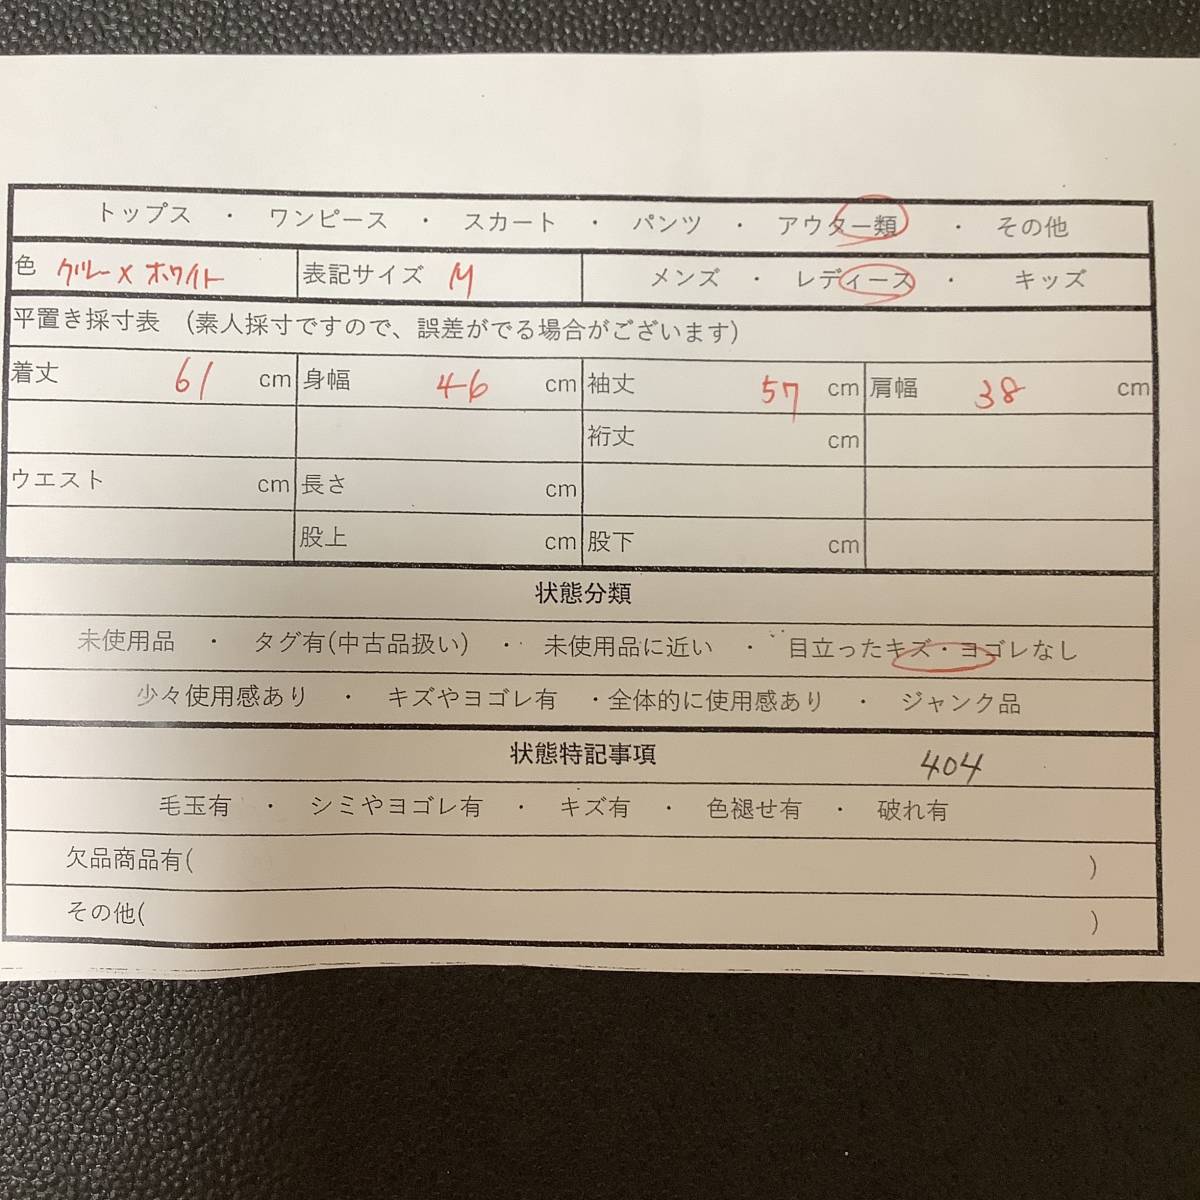 トップス ・ ワンピース ・ スカート ・ パンツ ・ アウター類 ・ その他
色 グレー×ホワイト 表記サイズ M メンズ ・ レディース ・ キッズ
平置き採寸表 (素人採寸ですので、誤差がでる場合がございます)
着丈 61 cm 身幅 46 cm 袖丈 57 cm 肩幅 38 cm
裄丈 cm
ウエスト cm 長さ cm
股上 cm 股下 cm
状態分類
未使用品 ・ タグ有(中古品扱い) ・ 未使用品に近い ・ 目立ったキズ・ヨゴレなし
少々使用感あり ・ キズやヨゴレ有 ・全体的に使用感あり ・ ジャンク品
状態特記事項 404
毛玉有 ・ シミやヨゴレ有 ・ キズ有 ・ 色褪せ有 ・ 破れ有
欠品商品有( )
その他( )